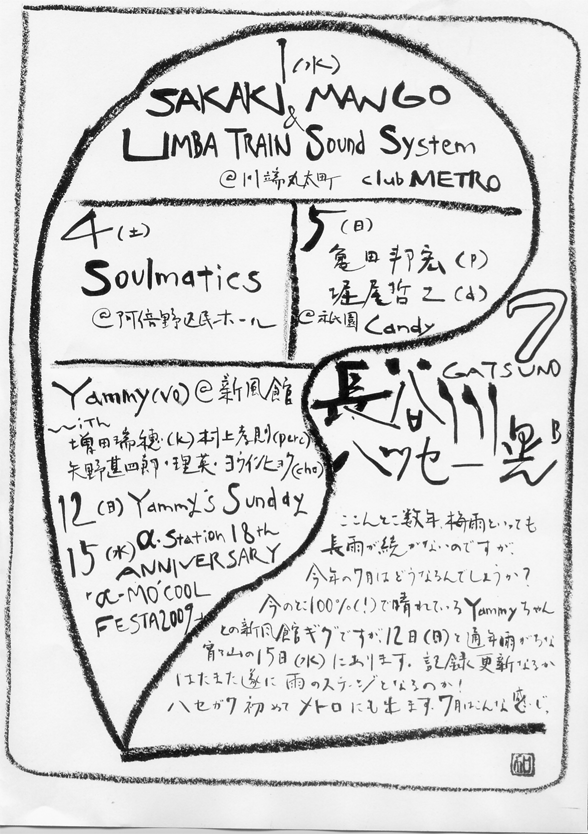 1(水)
SAKAKI MANGO
&
LIMBA TRAIN Sound System
@川端丸太町 club METRO
4(土)
Soulmatics
@阿倍野区民ホール
5(日)
亀田邦宏(P)
堀尾哲二(d)
@祇園 Candy
7
GATSUNO
長谷川
ハッセー晃
B
Yammy(vo)@新風館
with
増田瑞穂(k)村上彦則(perc)
矢野甚四郎・理英・ヨウインヒョク(cho)
12(日)Yammy's Sunday
15(水)α-Station 18th
ANNIVERSARY
"α-MO'COOL
FESTA2009"
ここんとこ数年、梅雨といっても
長雨が続かないのですが、
今年の7月はどうなるんでしょうか?
今のとこ100%(!)で晴れているYammyちゃん
との新風館ギグですが12日(日)と通年雨がちな
宵々山の15日(水)にあります。記録更新なるか
はたまた遂に雨のステージとなるのか!
ハセガワ初めてメトロにも出ます。7月はこんな感じ。